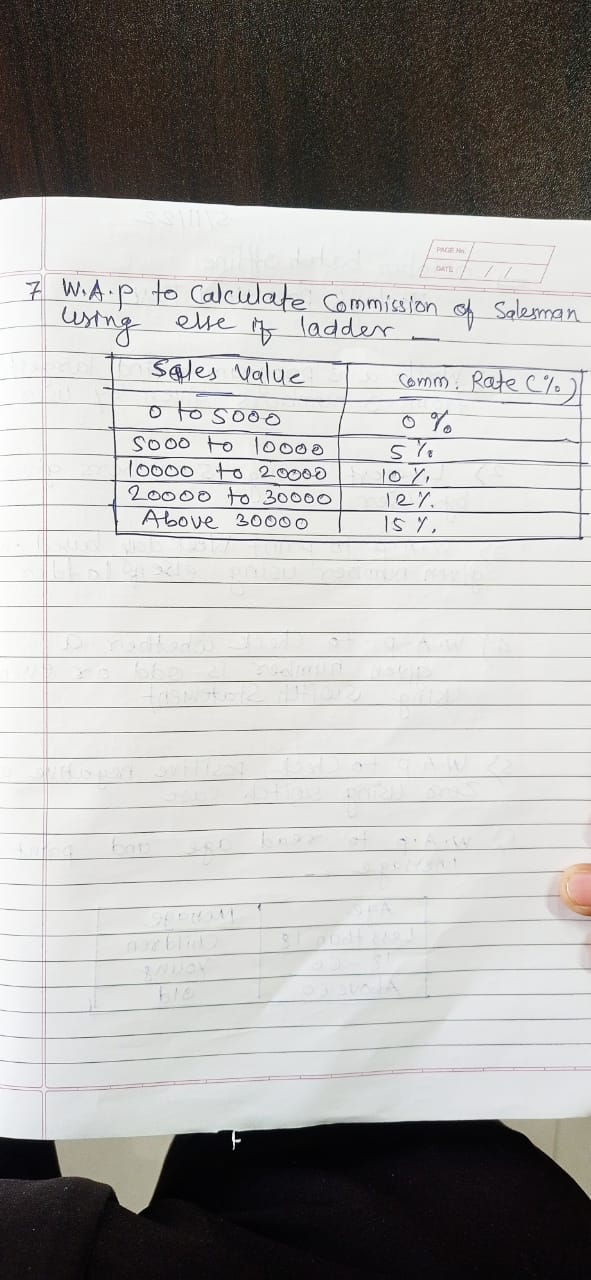 PAGE No.
DATE / /
7 W.A.P to Calculate Commission of Salesman
using else if ladder _
Sales Value Comm. Rate (%)
0 to 5000 0 %
5000 to 10000 5 %
10000 to 20000 10 %.
20000 to 30000 12 %.
Above 30000 15 %.